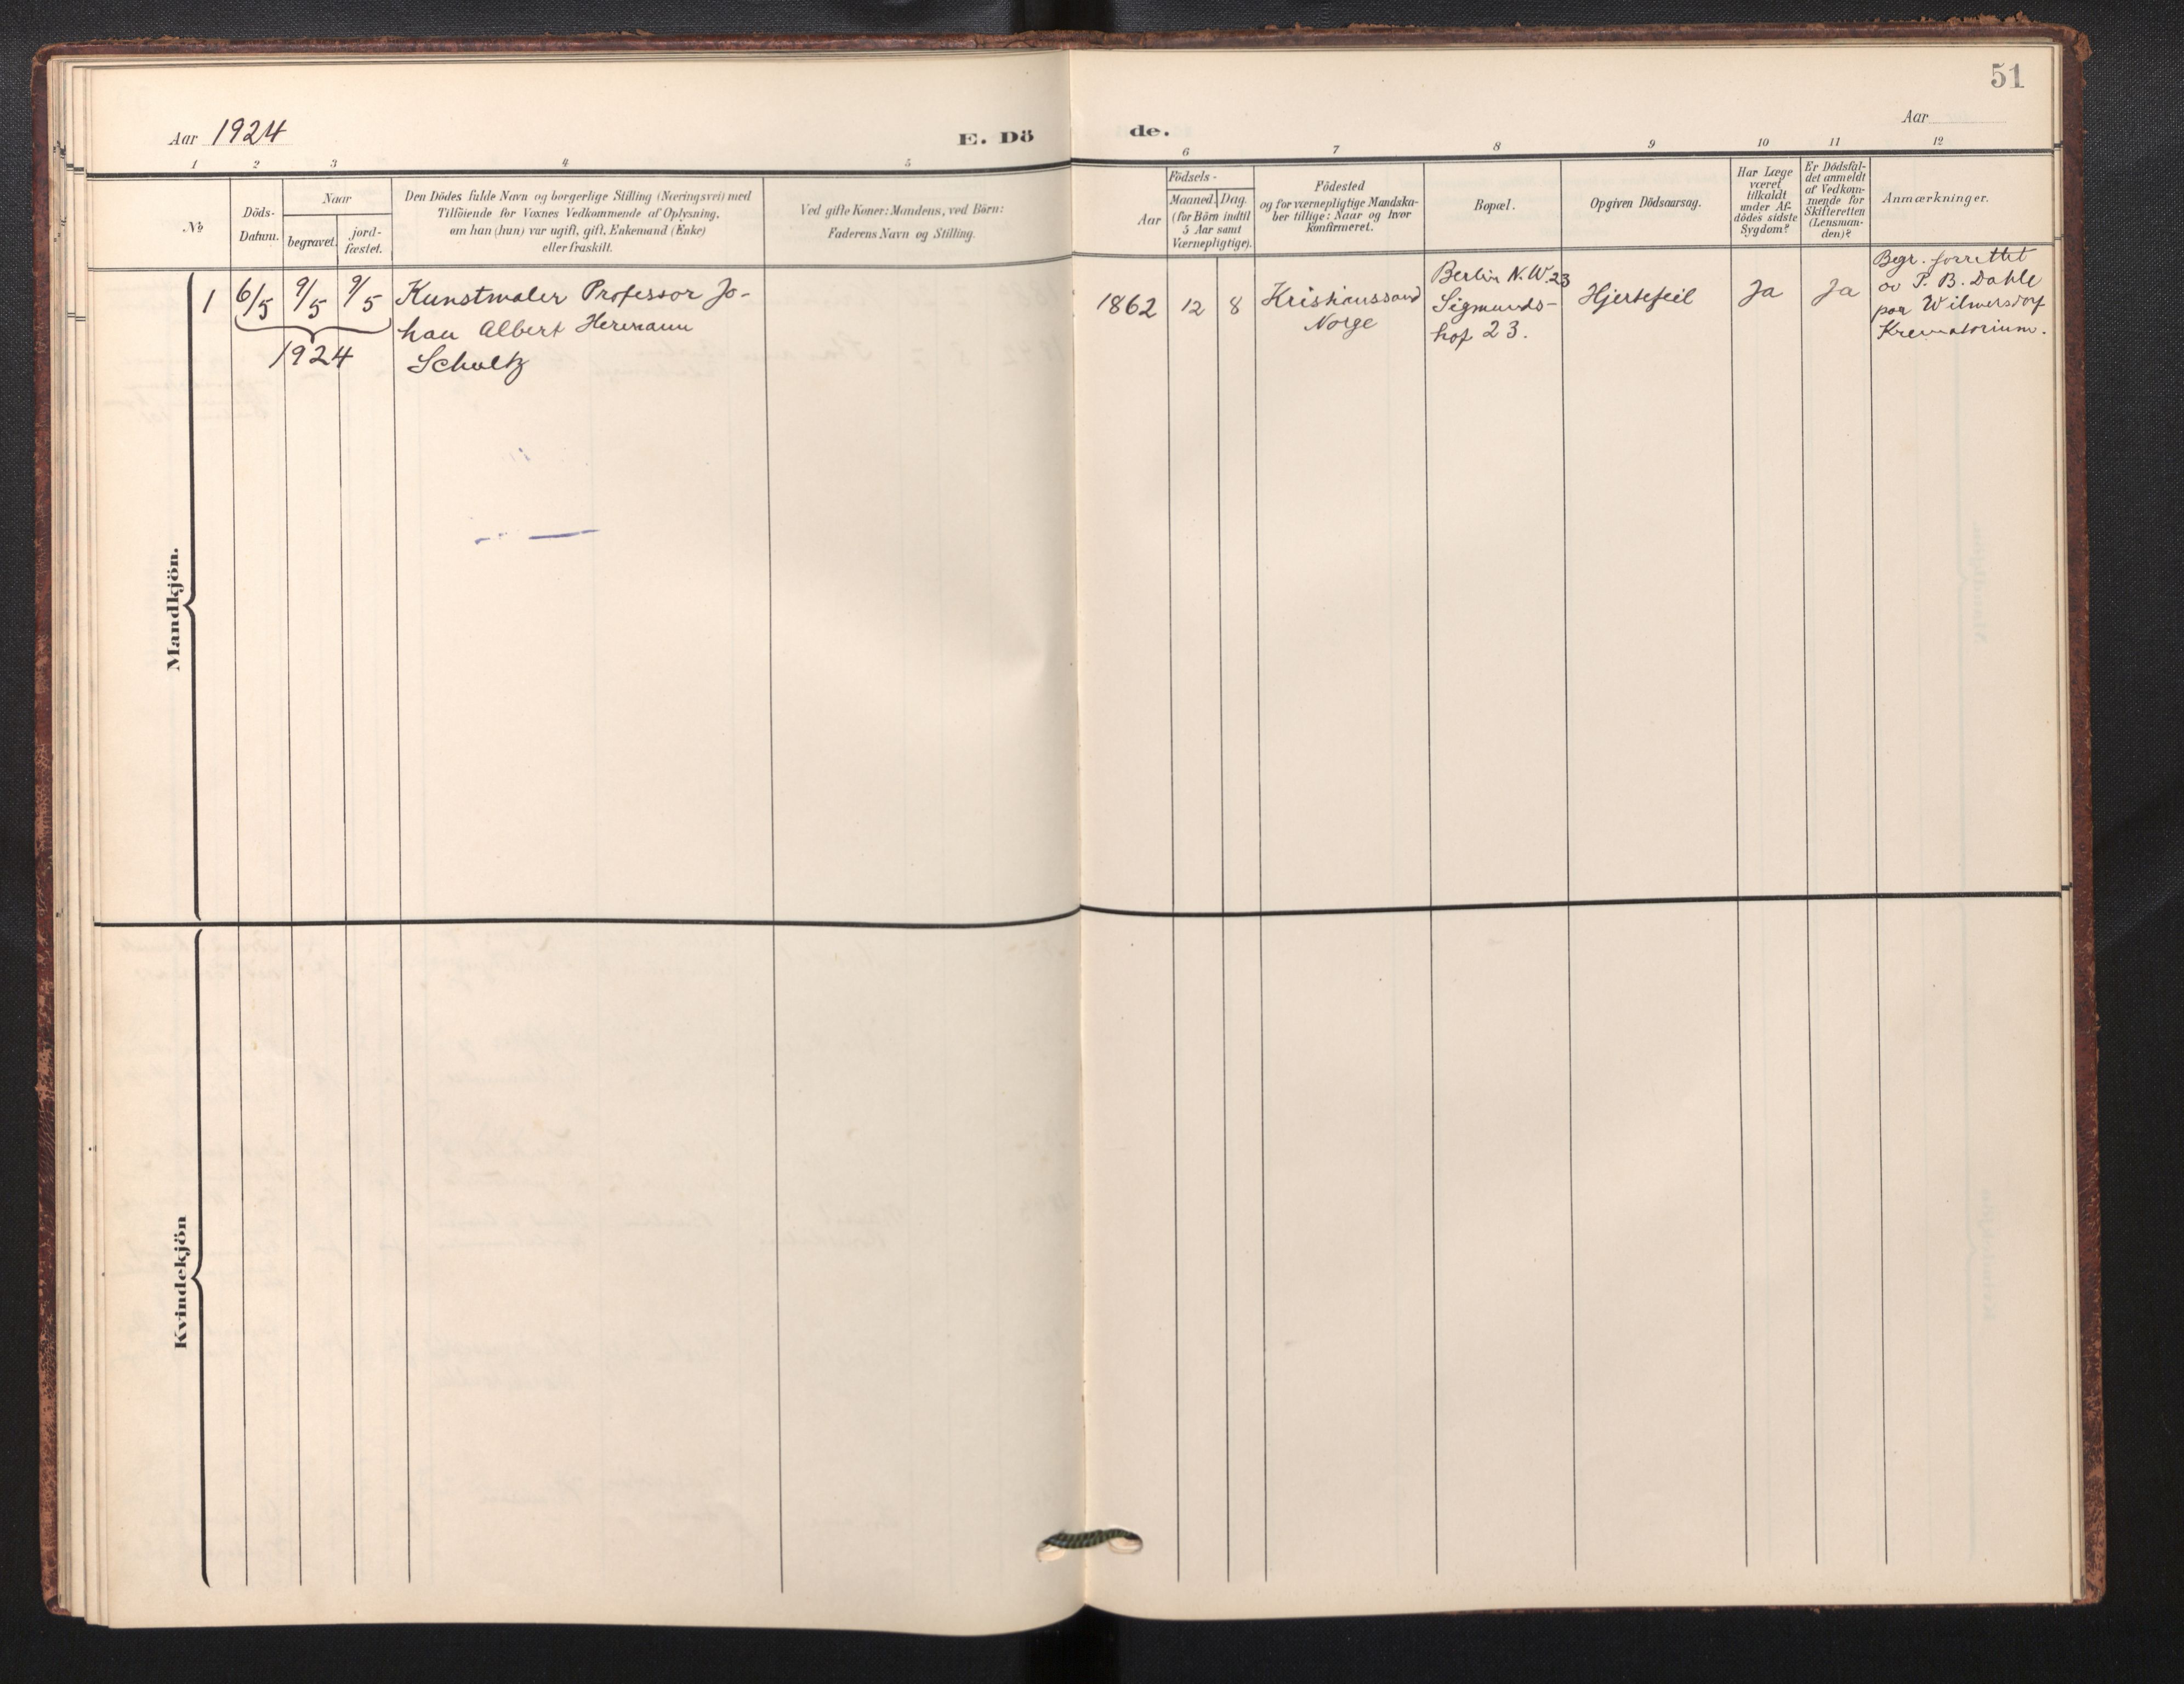 51
Aar 1924
E. Dö
de.
Aar
1 2 3 4 5
6 7 8 9 10 11 12
No
Döds-
Datum.
Naar
begravet.
jord-
fæstet.
Den Dödes fulde Navn og borgerlige Stilling (Næringsvei) med
Tilföiende for Voxnes Vedkommende af Oplysning,
om han (hun) var ugift, gift, Enkemand (Enke)
eller fraskilt.
Ved gifte Koner: Mandens, ved Börn:
Faderens Navn og Stilling.
Födsels-
Aar
Maaned.
Dag.
(for Börn indtil
5 Aar samt
Værnepligtige).
Födested
og for værnepligtige Mandska-
ber tillige: Naar og hvor
konfirmeret.
Bopæl.
Opgiven Dödsaarsag.
Har Læge
været
tilkaldt
under Af-
dödes sidste
Sygdom?
Er Dödsfal-
det anmeldt
af Vedkom-
mende for
Skifteretten
(Lensman-
den)?
Anmærkninger.
Mandkjön.
1
6/5
9/5
9/5
1924
Kunstmaler Professor Jo-
han Albert Hermann
Schultz
1862
12
8
Kristianssand
Norge
Berlin N.W.23
Sigmunds-
hof 23.
Hjertefeil
Ja
Ja
Begr. forrettet
av P. B. Dahle
paa Wilmersdorf
Krematorium.
Kvindekjön